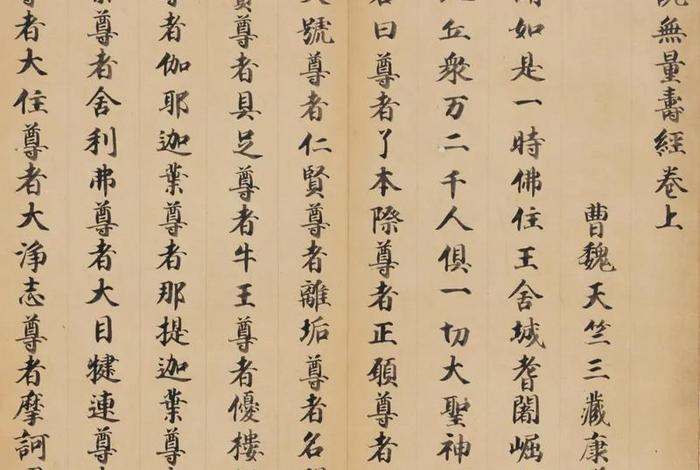 説無量壽經卷上
曹魏天竺三藏康
聞如是一時佛住王舍城耆闍崛
丘衆万二千人俱一切大聖神
名曰尊者了本際尊者正願尊者
號尊者仁賢尊者離垢尊者名
賓尊者具足尊者牛王尊者優樓
者伽耶迦葉尊者那提迦葉尊
尊者舍利弗尊者大目犍連尊
者大住尊者大净志尊者摩訶